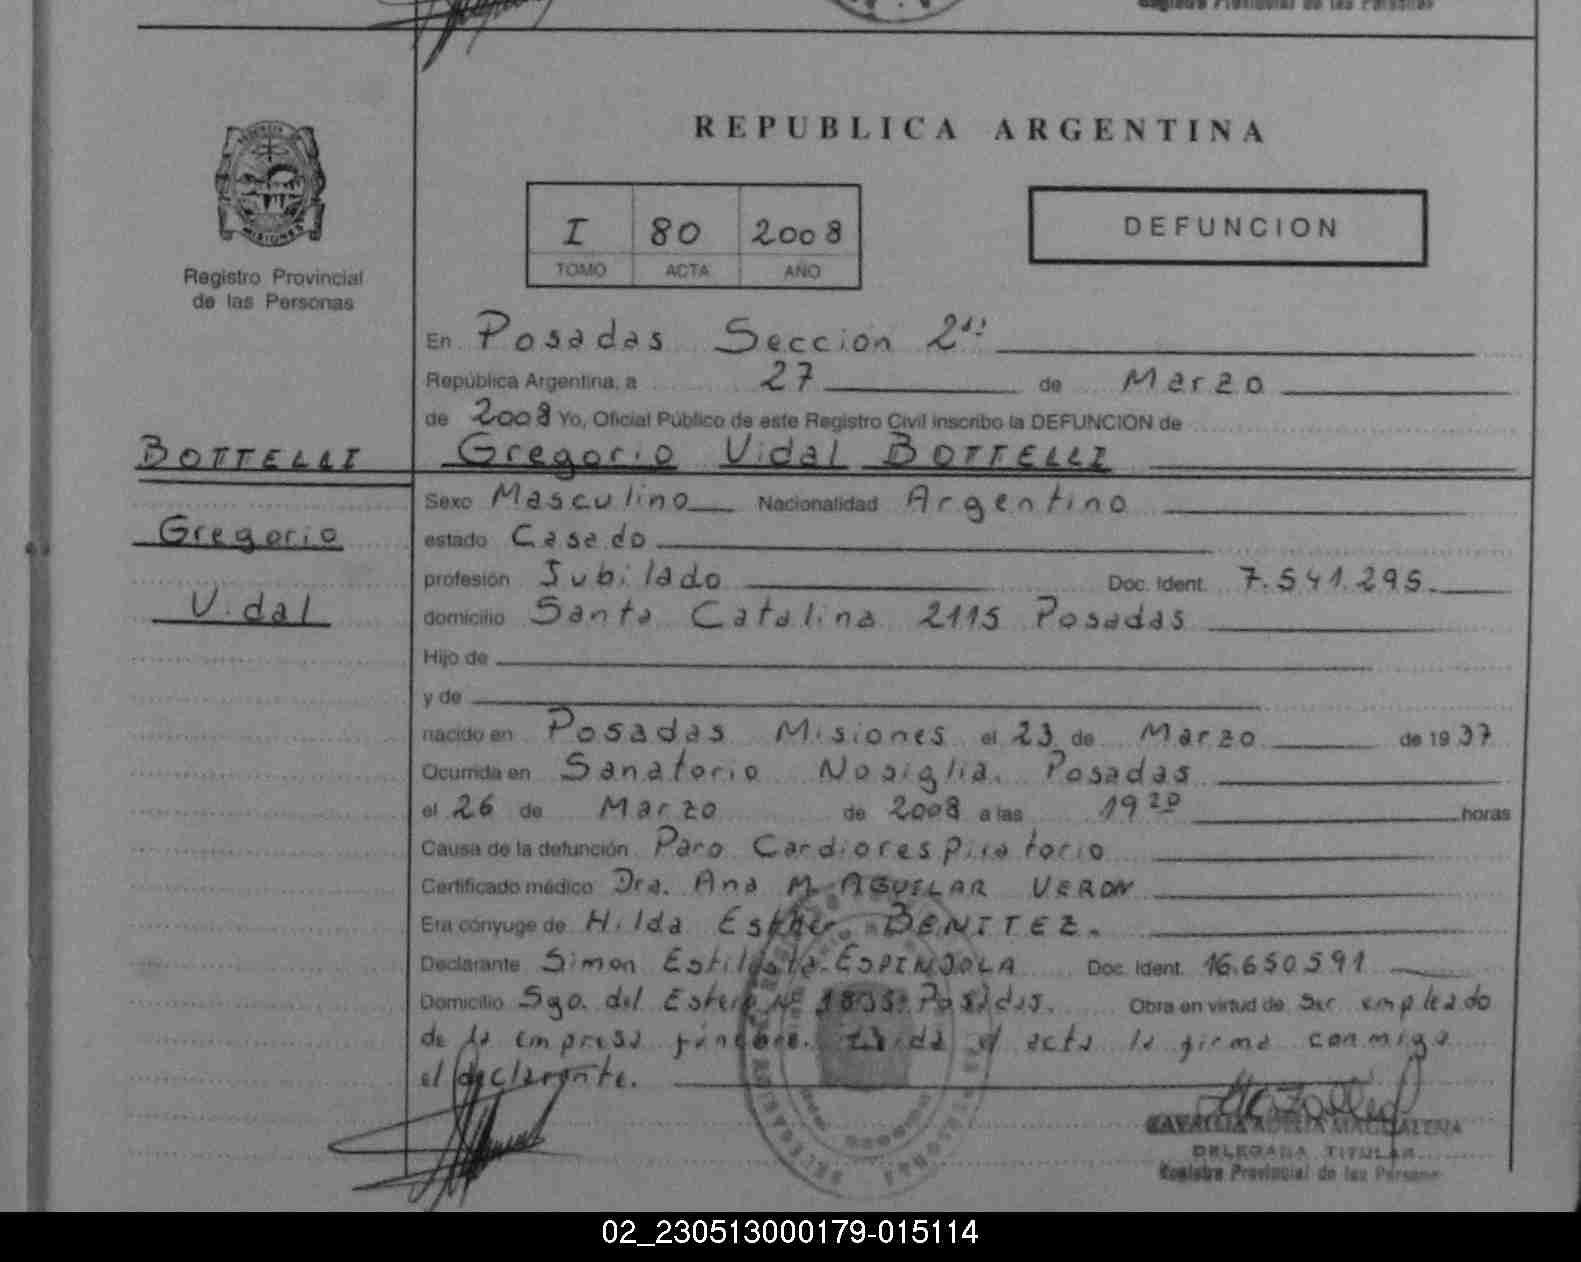 REPUBLICA ARGENTINA
I 80 2008
TOMO ACTA AÑO
DEFUNCION
MISIONES
Registro Provincial
de las Personas
En Posadas Sección 2da
República Argentina, a 27 de Marzo
de 2008 Yo, Oficial Público de este Registro Civil inscribo la DEFUNCION de
BOTTELLI
Gregorio
Vidal
Gregorio Vidal BOTTELLI
Sexo Masculino Nacionalidad Argentino
estado Casado
profesión Jubilado Doc. Ident. 7.541.295.
domicilio Santa Catalina 2115 Posadas
Hijo de
y de
nacido en Posadas Misiones el 23 de Marzo de 1937
Ocurrida en Sanatorio Nosiglia. Posadas
el 26 de Marzo de 2008 a las 19 20 horas
Causa de la defunción Paro Cardiorespiratorio
Certificado médico Dra. Ana M. AGUILAR VERON
Era cónyuge de Hilda Esther BENITEZ.
Declarante Simon ESPINDOLA Doc. Ident. 16.650.591
Domicilio Sgo. del Estero Nº Posadas. Obra en virtud de Ser empleado
de la empresa fúnebre. Leída el acta la firma conmigo
el declarante.
MAGDALENA
DELEGADA TITULAR
Registro Provincial de las Personas
02_230513000179-015114